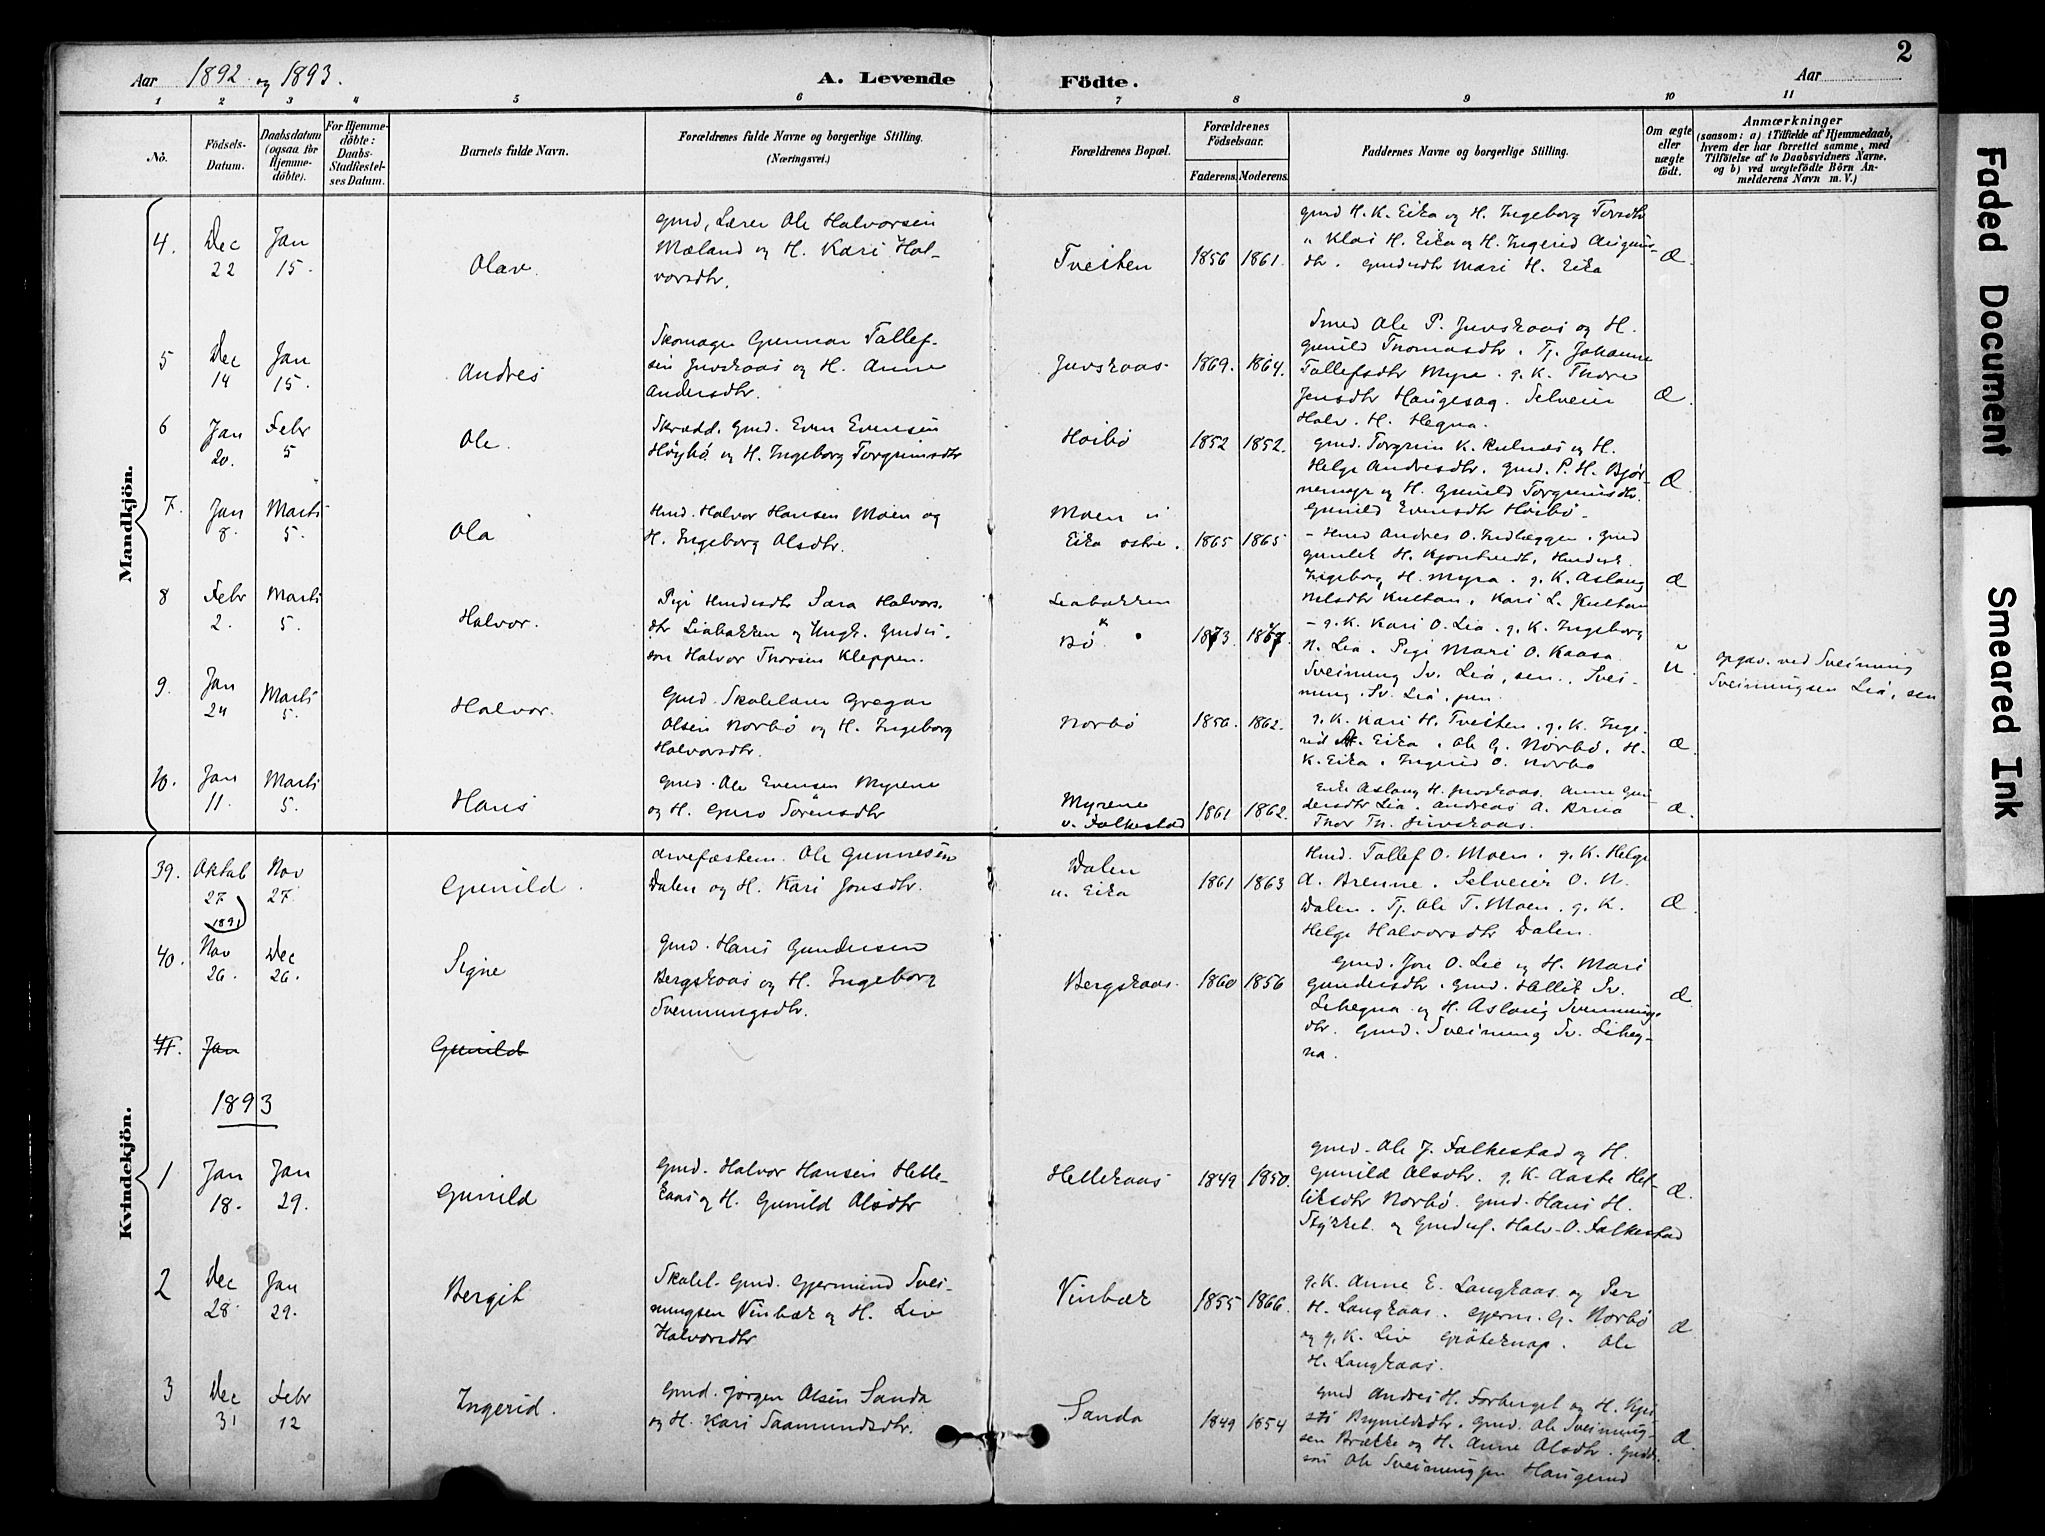 2
Aar 1892 og 1893.
A. Levende Födte.
Aar
1 2 3 4 5 6 7 8 9 10 11
No.
Födsels-Datum.
Daabsdatum (ogsaa for Hjemme-döbte).
For Hjemme-döbte: Daabs-Stadfæstel-ses Datum.
Barnets fulde Navn.
Forældrenes fulde Navne og borgerlige Stilling. (Næringsvei.)
Forældrenes Bopæl.
Forældrenes Födselsaar.
Faderens. Moderens.
Faddernes Navne og borgerlige Stilling.
Om ægte eller uægte födt.
Anmærkninger
(saasom: a) i Tilfælde af Hjemmedaab, hvem der har forrettet samme, med Tilföielse af to Daabsvidners Navne, og b) ved uægtefödte Börn An-melderens Navn m. V.)
Mandkjön.
4. Dec 22 Jan 15. Olav.
Gmd, Lærer Ole Halvorsen
Mæland og H. Kari Hal-
vorsdtr.
Tveiten 1856 1861.
Gmd H. K. Eika og H. Ingeborg Torsdtr
" Klas H. Eika og H. Ingerid
dtr. Mari H. Eika
Æ.
5 Dec 14 Jan 15. Andres
Skomager Gunnar Tallef-
sen Juvskaas og H. Anne
Andersdtr.
Juvskaas. 1869. 1864.
Smed Ole P. Juvskaas og H.
Gunild Thomasdtr. Tj. Johanne
Tallefsdtr Myra. g. K. Thore
Jensdtr Haugesag. Selveier
Halv. H. Hegna.
Æ.
6 Jan 20. Febr 5 Ole.
Skrædd. Gmd. Even Evensen
Høybø og H. Ingeborg Torgrimsdtr
Høibø 1852 1852.
Gmd. Torgrim K. og H.
Helge Andresdtr. Gmd. P. H. Bjør-
nemyr og H. Gunild Torgrimsdtr.
Gunild Evensdtr Høibø.
Æ.
7. Jan 8. Marts 5. Ola
Hmd. Halvor Hansen Moen og
H. Ingeborg Olsdtr.
Moen u
Eika østre. 1865 1865
- Hmd Andres O. Gmd
H.
Ingeborg H. Myra. g. K. Aslaug
Nilsdtr Kultan. Kari L. Kultan
Æ
8 Febr 2. Marts 5. Halvor.
Pige Hmdsdtr Sara Halvors.
dtr Liabakken og Ungk. Gmds.
søn Halvor Thorsen Kleppen.
Liabakken
Bø 1873. 1867.
- g. K. Kari O. Lia. g. K. Ingeborg
N. Lia. Pige Mari O. Kaasa
Sveinung Sv. Lia, sen., Svei-
nung. Sv. Lia, jun.
U.
opgav. ved Sveinung
Sveinungsen Lia, sen
9. Jan 24 Marts 5. Halvor.
Gmd. Skolelærer Gregar
Olsen Norbø og H. Ingeborg
Halvorsdtr.
Norbø 1856. 1862.
g. K. Kari H. Tveiten. g. K. Inge-
rid Eika. Ole G. Norbø. H.
K. Eika. Ingerid O. Norbø
Æ.
10. Jan 11. Marts 5. Hans
Gmd. Ole Evensen Myrene
og H. Guro Sörensdtr
Myrene
u. Falkestad 1861 1862.
Enke Aslaug H. Juvskaas. Anne Gun-
dersdtr Lia. Andreas A.
Thor Th. Juvskaas.
Æ.
Kvindekjön.
39. Oktob 27 1892 Nov 27. Gunild.
Ole Gunnesen
Dalen og H. Kari Jonsdtr.
Dalen
u. Eika 1861 1863
Hmd. Tallef O. Moen. g. K. Helge
A. Brenne. Selveier O. N.
Dalen. Tj. Ole T. Moen. g. K.
Helge Halvorsdtr Dalen.
Æ.
40. Nov 26. Dec 26. Signe
Gmd. Hans Gundersen
Bergskaas og H. Ingeborg
Svennungsdtr.
Bergskaas. 1860 1856
Gmd. Jon O. Lie og H. Mari
Gundersdtr. Gmd. Hellik Sv.
Lihegna og H. Aslaug Svennungs-
dtr. Gmd. Sveinung Sv. Liheg-
na.
Æ.
41. Jan Gunild
1893
1 Jan 18. Jan 29. Gunild
Gmd. Halvor Hansen Helle-
kaas og H. Gunild Olsdtr
Hellekaas 1849 1850.
Gmd. Ole J. Falkestad og H.
Gunild Olsdtr. g. K. Aaste Hel-
liksdtr Norbø. Gmd. Hans H.
Stykket og Gmdsf. Halv. O. Falkestad
Æ.
2 Dec 28. Jan 29. Bergit
Skolel. Gmd. Gjermund Svei-
nungsen Vinbæk og H. Liv
Halvorsdtr
Vinbæk 1855 1866.
g.K. Anne E. Langkaas og Per
H. Langkaas. Gjerm. G. Norbø
og g. K. Liv Gröteknap. Ole
H. Langkaas.
Æ
3 Dec 31 Febr 12 Ingerid.
Gmd. Jørgen Olsen Sanda
og H. Kari Saamundsdtr.
Sanda 1849 1854
Gmd Andres H. Forberget og H. Kjer-
sti Brynildsdtr. Gmd. Ole Sveinung-
sen Brække og H. Anne Olsdtr. Gmd.
søn Ole Sveinungsen Haugerud
Æ.
Faded Document
Smeared Ink